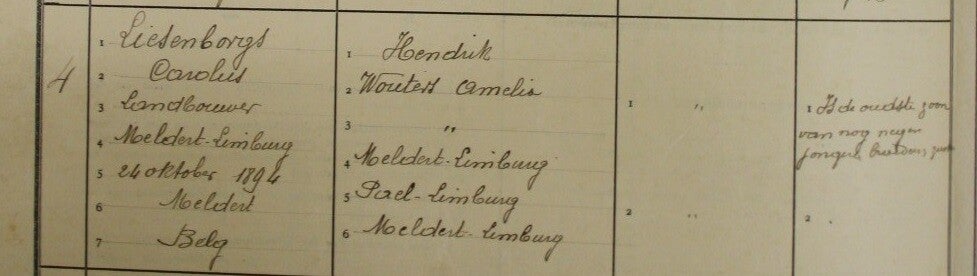 4
1 Liesenborgs
2 Carolus
3 Landbouwer
4 Meldert-Limburg
5 24 oktober 1894
6 Meldert
7 Belg
1 Hendrik
2 Wouters Amelia
3 "
4 Meldert-Limburg
5 Pael-Limburg
6 Meldert-Limburg
1 "
2 "
1 Is de oudste zoon
van nog negen
jongere broeders
2 "